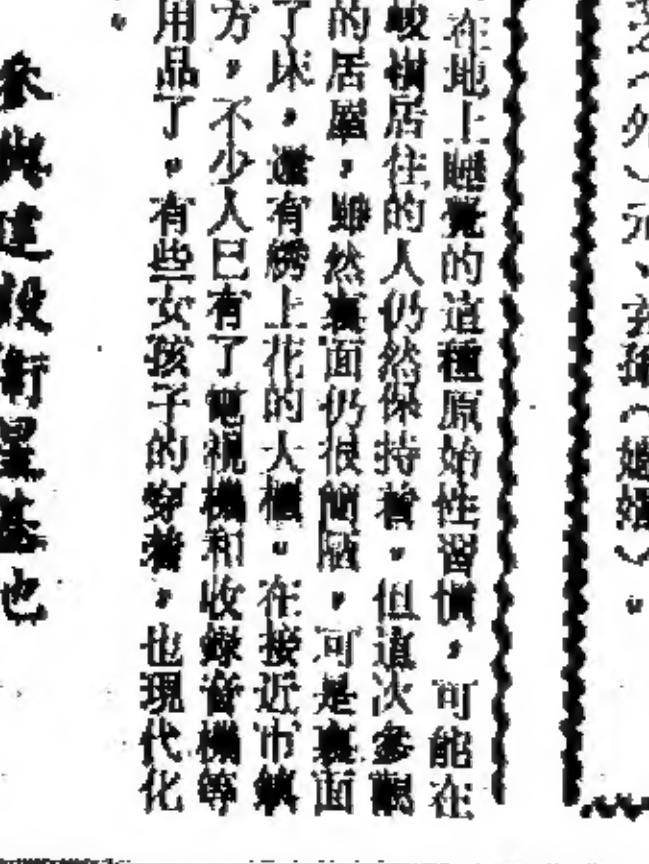 外）元、玄孫（媳
婿）。
在地上睡覺的這種原始性習慣，可能在
峻樹居住的人仍然保持着。但這次參觀
的居屋，雖然裏面仍很簡陋，可是裏面
了床，還有綉上花的大櫃。在接近市鎮
方，不少人已有了電視機和收錄音機等
用品了。有些女孩子的穿着，也現代化
。
參與建設衛星基也